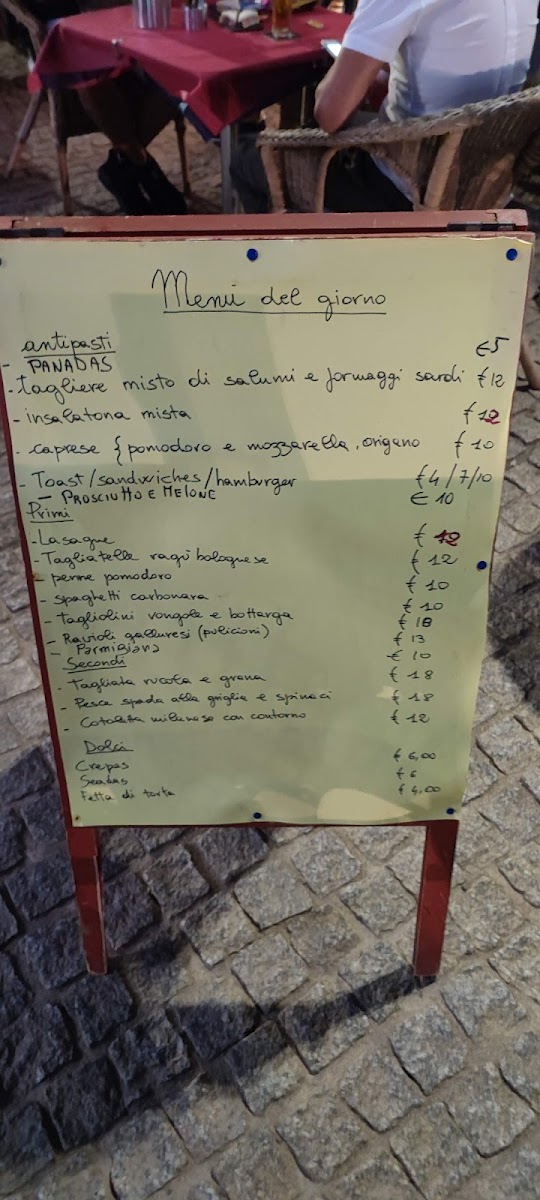 Menù del giorno
antipasti
- PANADAS €5
- tagliere misto di salumi e formaggi sardi €12
- insalatona mista €12
- caprese { pomodoro e mozzarella, origano €10
- Toast/sandwiches/hamburger €4/7/10
- PROSCIUTTO E MELONE €10
Primi
- Lasagne €12
- Tagliatelle ragù bolognese €12
- penne pomodoro €10
- spaghetti carbonara €10
- Tagliolini vongole e bottarga €18
- Ravioli galluresi (pulicioni) €13
- Parmigiana €10
Secondi
- Tagliata rucola e grana €18
- Pesce spada alla griglia e spinaci €18
- Cotoletta milanese con contorno €12
Dolci
Crepes €6,00
Seadas €6
Fetta di torta €4,00